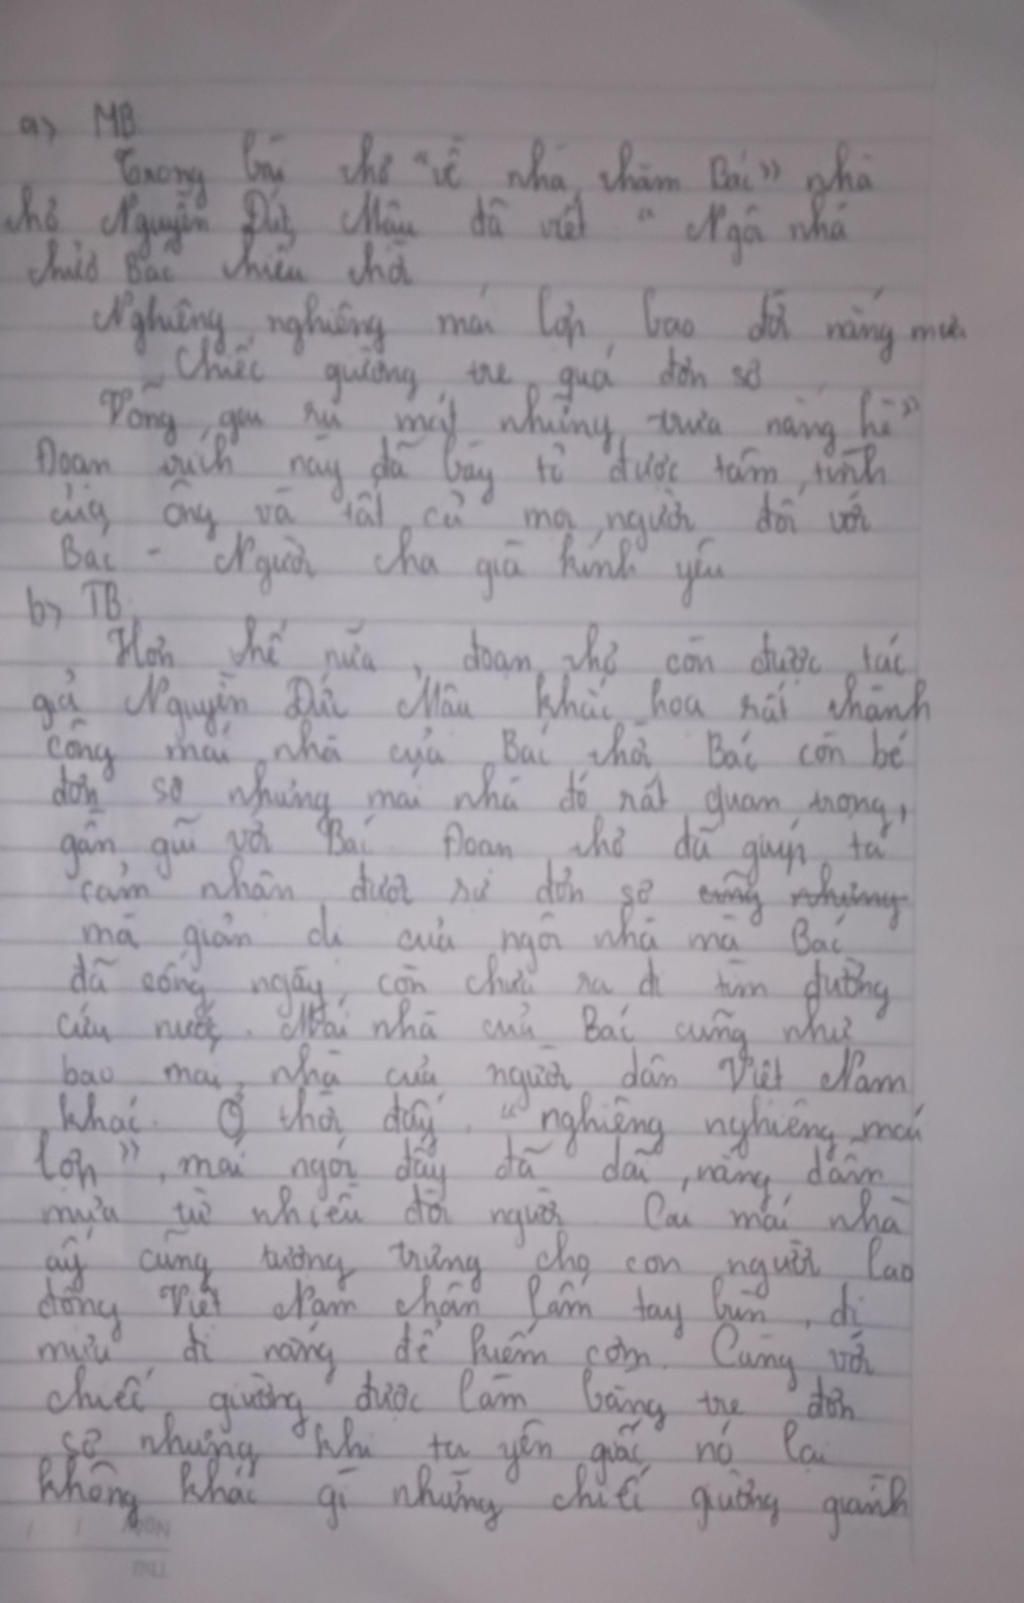 a) MB
Trong bài thơ "Về nhà thăm Bác" nhà
thơ Nguyễn Đức Mậu đã viết " Ngôi nhà
thuở Bác thiếu thời
Nghiêng nghiêng mái lợp bao đời nắng mưa
Chiếc giường tre quá đơn sơ
Võng gai ru mát những trưa nắng hè"
Đoạn trích này đã bày tỏ được tâm tình
của ông và tất cả mọi người đối với
Bác - Người cha già kính yêu
b) TB
Hơn thế nữa, đoạn thơ còn được tác
giả Nguyễn Đức Mậu khắc hoạ rất thành
công mái nhà của Bác thời Bác còn bé
đơn sơ nhưng mái nhà đó rất quan trọng,
gần gũi với Bác. Đoạn thơ đã giúp ta
cảm nhận được sự đơn sơ cũng nhưng
mà giản dị của ngôi nhà mà Bác
đã sống ngày còn chưa ra đi tìm đường
cứu nước. Mái nhà của Bác cũng như
bao mái nhà của người dân Việt Nam
khác. Ở thời đấy, "nghiêng nghiêng mái
lợp", mái ngói đấy đã dãi nắng dầm
mưa từ nhiều đời người. Cái mái nhà
ấy cũng tượng trưng cho con người lao
động Việt Nam chân lấm tay bùn, đi
mưa đi nắng để kiếm cơm. Cùng với
chiếc giường được làm bằng tre đơn
sơ nhưng khi ta yên giấc nó lại
không khác gì những chiếc giường giành